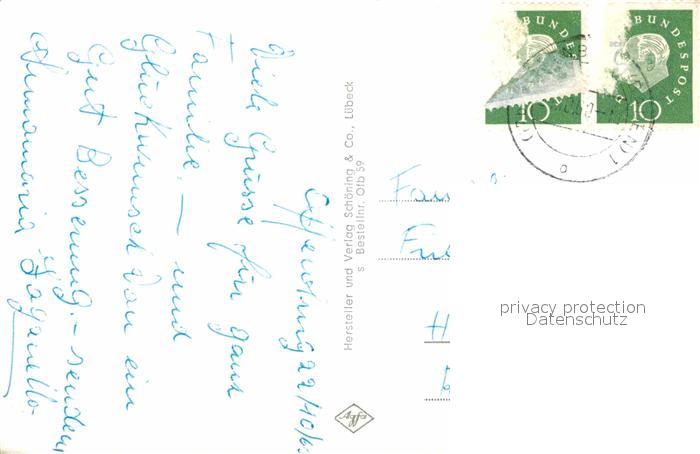 Viele Grüsse für ganz
Familie. — und
Glückwunsch von ein
Gut Besserung. — senden
Annamaria
Hersteller und Verlag Schöning & Co., Lübeck
s Bestellnr. Ofb 59
BUNDESPOST
10
BUNDESPOST
10
Fam
H
privacy protection
Datenschutz